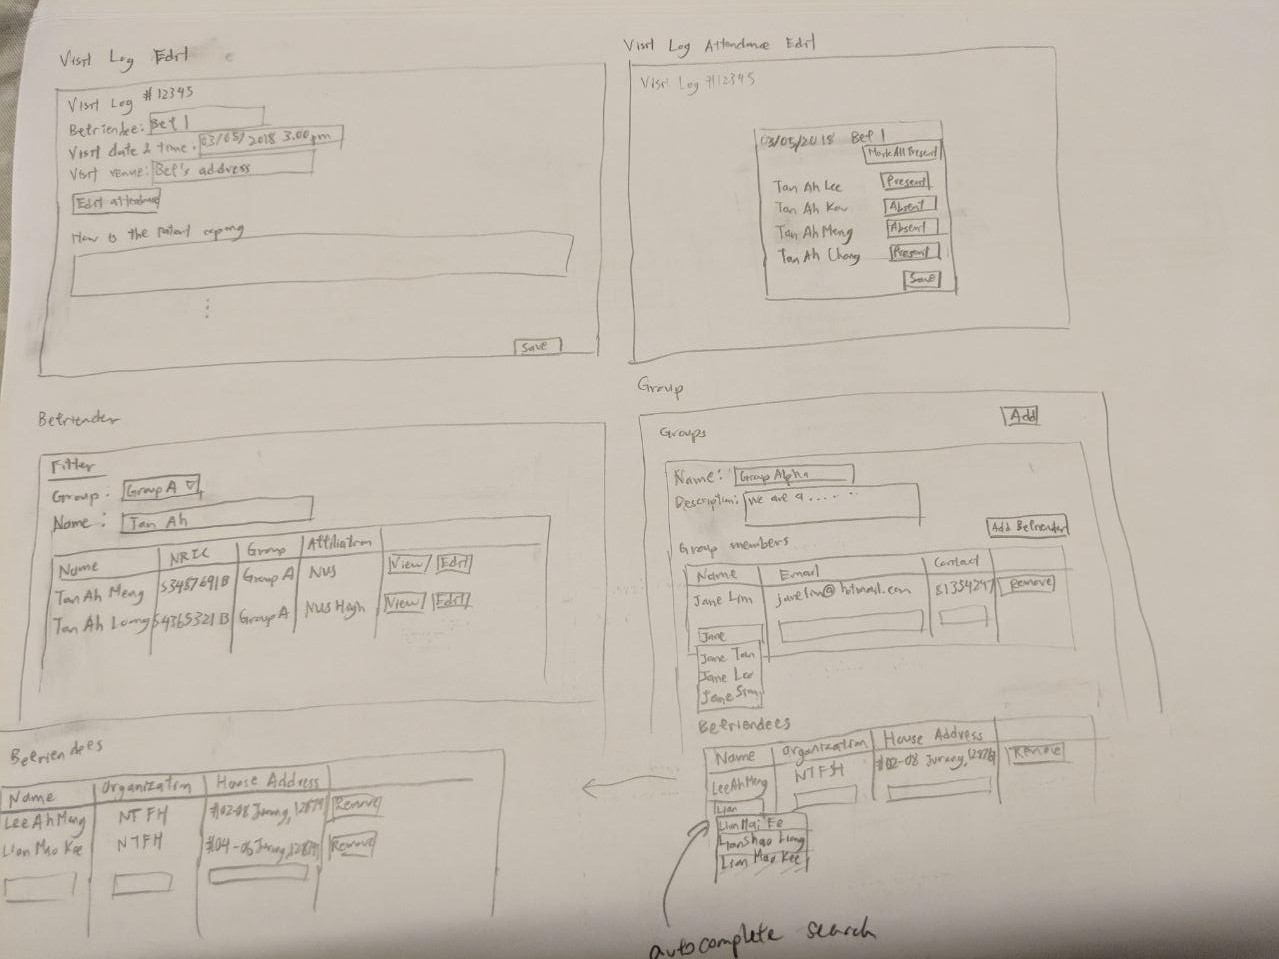 Visit Log Edit
Visit Log #12345
Befriendee: Bef 1
Visit date & time: 03/05/2018 3.00pm
Visit venue: Bef's address
Edit attendance
How is the patient coping
Save
Visit Log Attendance Edit
Visit Log #12345
03/05/2018 Bef 1
Mark All Present
Tan Ah Lee Present
Tan Ah Kow Absent
Tan Ah Meng Absent
Tan Ah Chong Present
Save
Befriender
Filter
Group: Group A
Name: Tan Ah
Name NRIC Group Affiliation
Tan Ah Meng S3457691B Group A NUS View / Edit
Tan Ah Long S4365321B Group A NUS High View / Edit
Group
Groups
Add
Name: Group Alpha
Description: We are a ......
Add Befriender
Group members
Name Email Contact
Jane Lim janelim@hotmail.com 81354247 Remove
Jane
Jane Tan
Jane Lee
Jane Sim
Befriendees
Name Organization House Address
Lee Ah Meng NTFH #02-08 Jurong, Remove
Lian
Lian Mai Fe
Lian Shao Liong
Lian Mao Kee
autocomplete search
Befriendees
Name Organization House Address
Lee Ah Meng NTFH #02-08 Jurong, Remove
Lian Mao Kee NTFH #04-06 Jurong, Remove